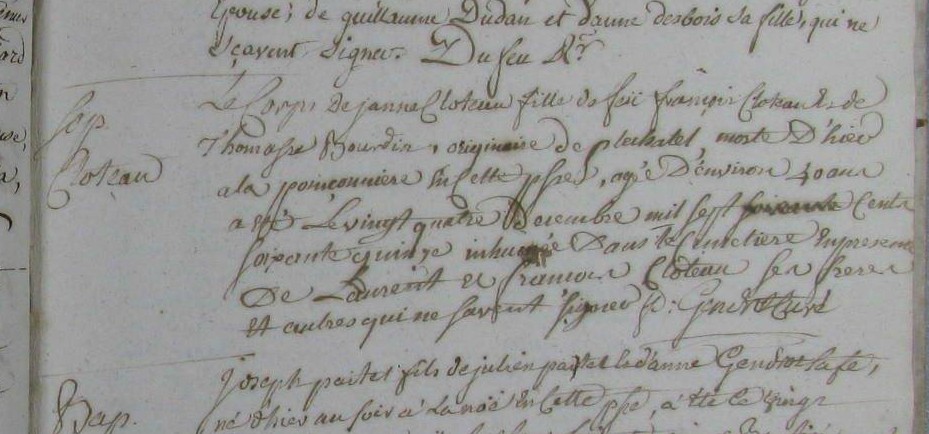 Epouse; de guillaume Dudan et d'anne desbois sa fille, qui ne
sçavent signer. Dufeu Rr
Sep.
Cloteau
Le Corps de janne Cloteau fille de feu françois Cloteau & de
Thomasse Bourdin, originaire de plechatel, morte D'hier
a la poinçonniere En Cette psse, agée D'environ 40 ans
a eté Le vingt quatre Decembre mil sept Cents
soixante quinze inhumée Dans le Cimetiere En presence
De Laurent et francois Cloteau ses freres
Et autres qui ne savent signer
Bap.
joseph paitel fils de julien paitel et d'anne Gendrot sa fe,
né d'hier au soir à La noë En Cette psse, a été le vingt